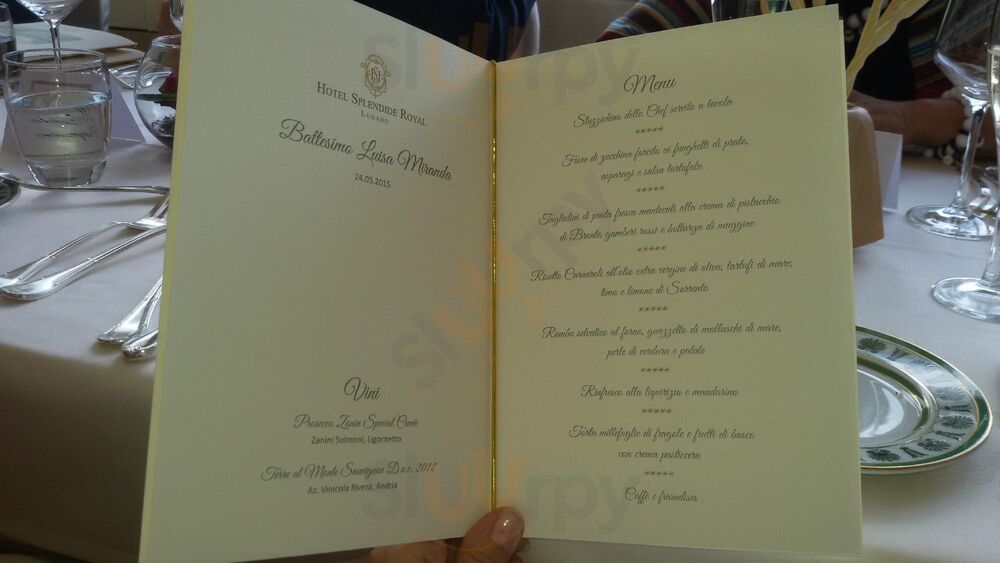 Hotel Splendide Royal
Lugano
Battesimo Luisa Miranda
24.05.2015
Vini
Prosecco Zonin Special Cuvèe
Zanini Sulmoni, Ligornetto
Terre al Monte Sauvignon D.o.c. 2012
Az. Vinicola Rivera, Andria
Menu
Stuzzichino dello Chef servito a tavola
*****
Fiore di zucchina farcito ai funghetti di prato,
asparagi e salsa tartufata
*****
Tagliolini di pasta fresca mantecati alla crema di pistacchio
di Bronte, gamberi rossi e bottarga di muggine
*****
Risotto Carnaroli all'olio extra vergine di oliva, tartufi di mare,
timo e limone di Sorrento
*****
Rombo selvatico al forno, guazzetto di molluschi di mare,
perle di verdura e patate
*****
Rinfresco alla liquirizia e mandarino
*****
Torta millefoglie di fragole e frutti di bosco
con crema pasticcera
*****
Caffè e friandises
slurrpy
slurrpy
slurrpy
slurrpy
slurrpy